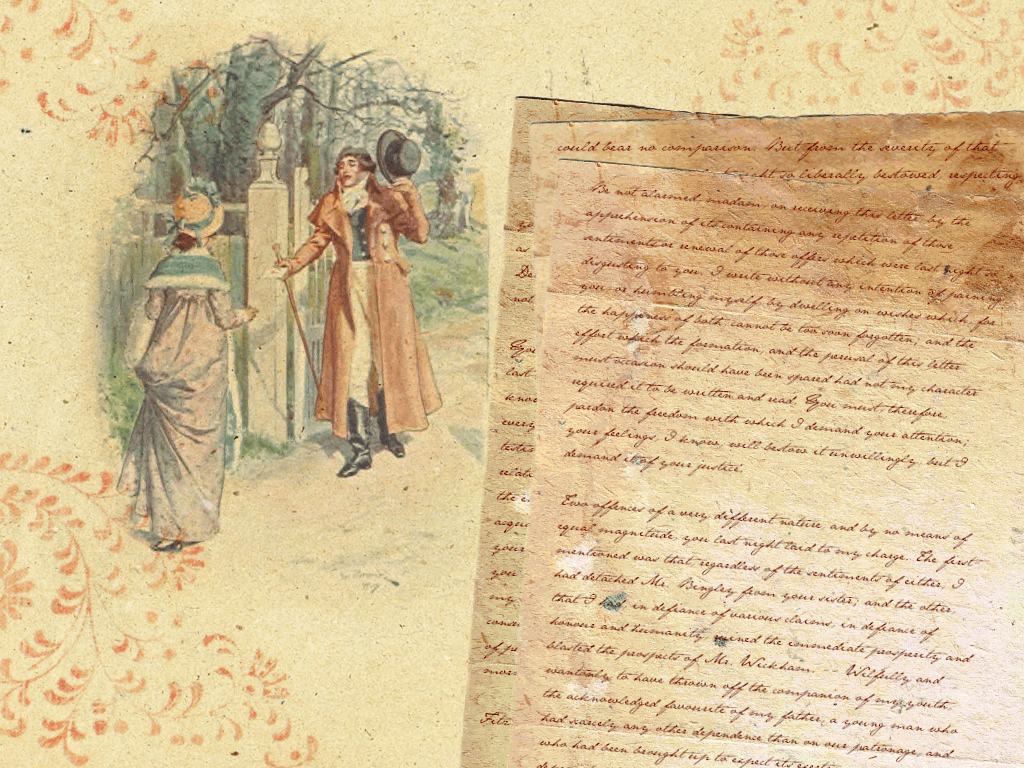 could bear no comparison. But from the severity of that
so liberally bestowed respecting
Be not alarmed madam, on receiving this letter, by the
apprehension of its containing any repetition of those
sentiments or renewal of those offers which were last night so
disgusting to you. I write without any intention of paining
you, or humbling myself, by dwelling on wishes which, for
the happiness of both, cannot be too soon forgotten, and the
effort which the formation, and the perusal of this letter
must occasion should have been spared had not my character
required it to be written and read. You must, therefore,
pardon the freedom with which I demand your attention;
your feelings, I know, will bestow it unwillingly, but I
demand it of your justice.
Two offences of a very different nature, and by no means of
equal magnitude, you last night laid to my charge. The first
mentioned was that, regardless of the sentiments of either, I
had detached Mr. Bingley from your sister; and the other,
that I had, in defiance of various claims, in defiance of
honour and humanity, ruined the immediate prosperity and
blasted the prospects of Mr. Wickham. -- Wilfully and
wantonly to have thrown off the companion of my youth,
the acknowledged favourite of my father, a young man who
had scarcely any other dependence than on our patronage, and
who had been brought up to expect its
as
not
last
every
the
your
you
my
of
more
Fitz